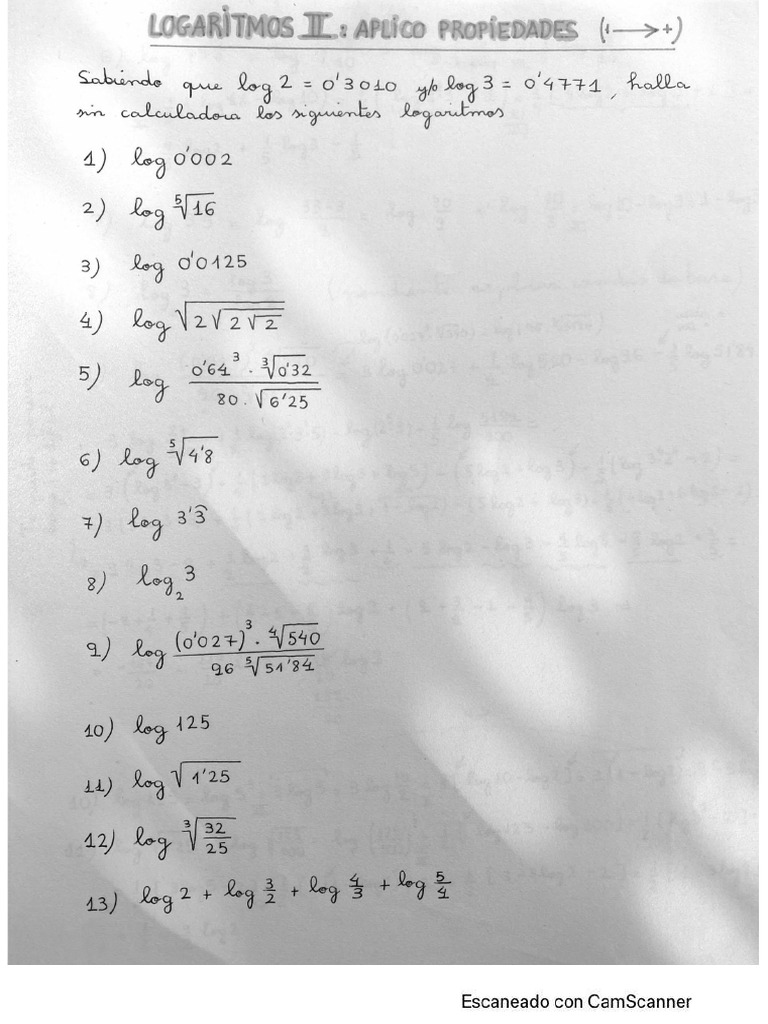 LOGARITMOS II: APLICO PROPIEDADES (·⟶+)
Sabiendo que log 2 = 0'3010 y/o log 3 = 0'4771, halla
sin calculadora los siguientes logaritmos
1) log 0'002
2) log ⁵√16
3) log 0'0125
4) log √(2√(2√2))
5) log (0'64³ · ³√0'32) / (80 · √6'25)
6) log ⁵√4'8
7) log 3'3̂
8) log₂ 3
9) log ((0'027)³ · ⁴√540) / (96 ⁵√51'84)
10) log 125
11) log √1'25
12) log ³√(32/25)
13) log 2 + log 3/2 + log 4/3 + log 5/4
Escaneado con CamScanner